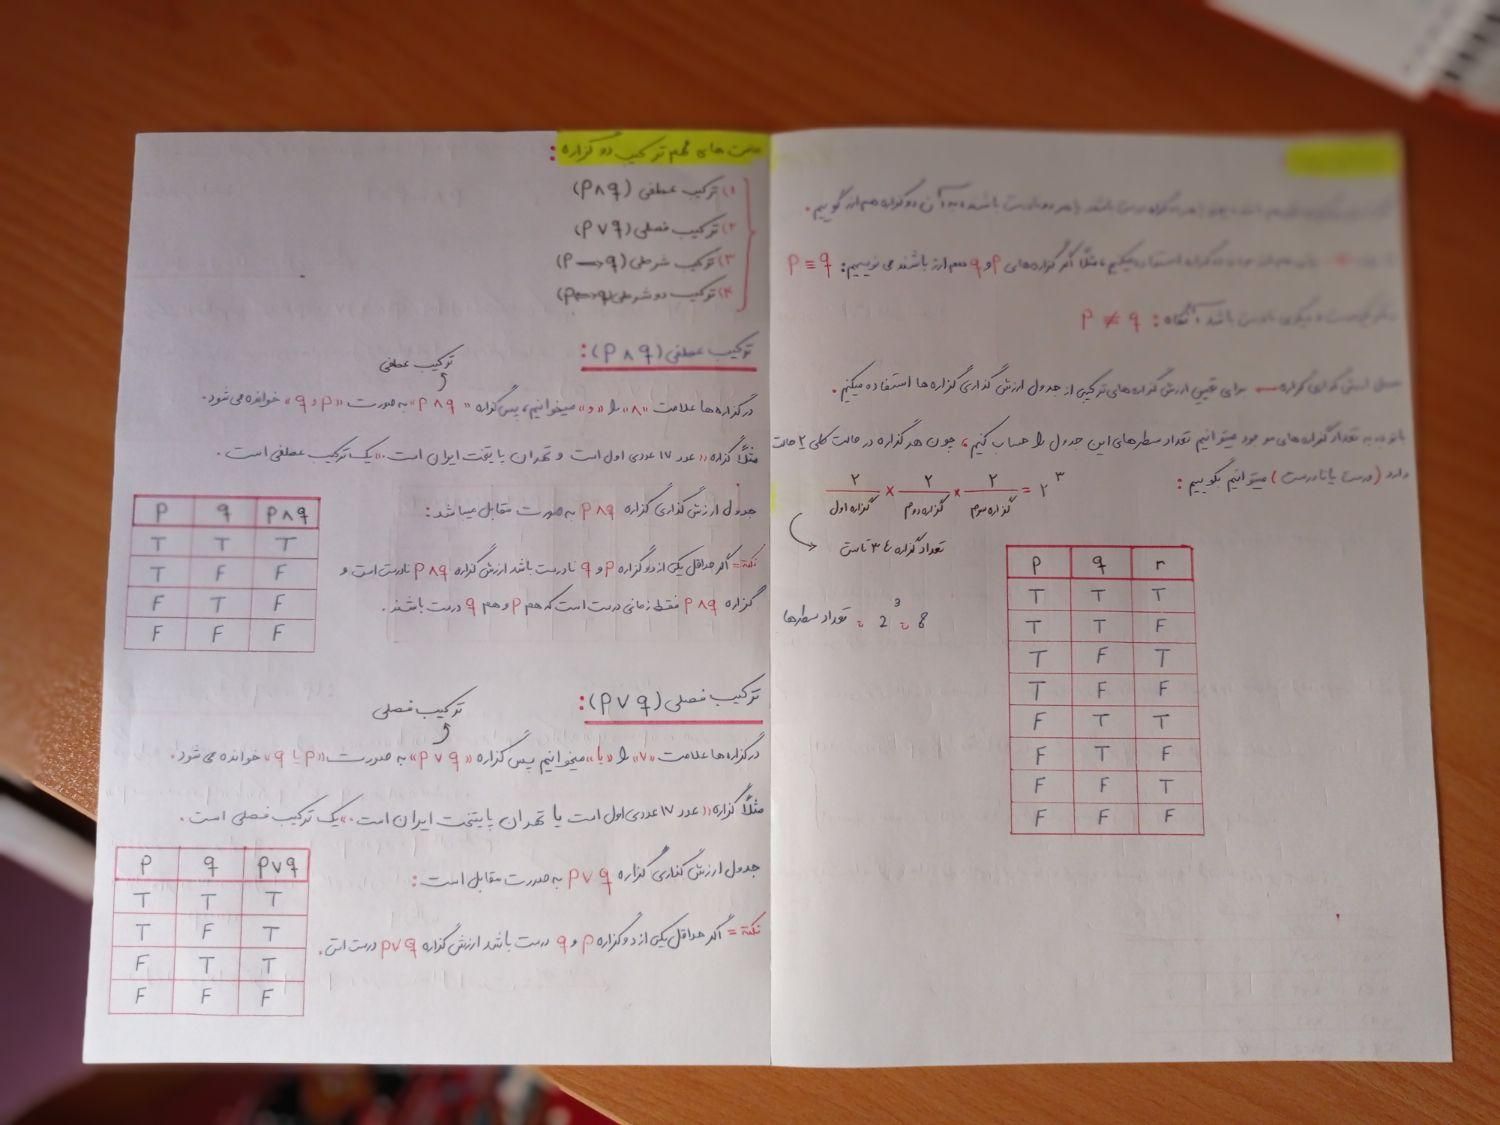 هر دو گزاره درست باشد یا هر دو نادرست باشند، به آن دو گزاره هم ارز گوییم.
گزاره استفاده میکنیم، مثلاً اگر گزاره های p و q هم ارز باشند می نویسیم: p ≡ q
دیگری نادرست باشد، آنگاه: p ≢ q
ارزش گذاری گزاره ← برای تعیین ارزش گزاره های ترکیبی از جدول ارزش گذاری گزاره ها استفاده میکنیم.
با توجه به تعداد گزاره های موجود میتوانیم تعداد سطرهای این جدول را حساب کنیم، چون هر گزاره در حالت کلی ۲ حالت
دارد (درست یا نادرست) میتوانیم بگوییم:
۲ × ۲ × ۲ = ۲^۳
گزاره اول گزاره دوم گزاره سوم
تعداد گزاره ها ۳ تاست
تعداد سطرها = 2^3 = 8
p q r
T T T
T T F
T F T
T F F
F T T
F T F
F F T
F F F
حالت های مهم ترکیب دو گزاره:
۱) ترکیب عطفی (p ∧ q)
۲) ترکیب فصلی (p ∨ q)
۳) ترکیب شرطی (p → q)
۴) ترکیب دو شرطی (p ↔ q)
ترکیب عطفی (p ∧ q):
ترکیب عطفی
در گزاره ها علامت «∧» را «و» میخوانیم، پس گزاره «p ∧ q» به صورت «p و q» خوانده می شود.
مثلاً گزاره «عدد ۱۷ عددی اول است و تهران پایتخت ایران است.» یک ترکیب عطفی است.
جدول ارزش گذاری گزاره p ∧ q به صورت مقابل میباشد:
p q p∧q
T T T
T F F
F T F
F F F
نکته = اگر حداقل یکی از دو گزاره p و q نادرست باشد ارزش گزاره p ∧ q نادرست است و
گزاره p ∧ q فقط زمانی درست است که هم p و هم q درست باشند.
ترکیب فصلی (p ∨ q):
ترکیب فصلی
در گزاره ها علامت «∨» را «یا» میخوانیم پس گزاره «p ∨ q» به صورت «p یا q» خوانده می شود.
مثلاً گزاره «عدد ۱۷ عددی اول است یا تهران پایتخت ایران است.» یک ترکیب فصلی است.
جدول ارزش گذاری گزاره p ∨ q به صورت مقابل است:
p q p∨q
T T T
T F T
F T T
F F F
نکته = اگر حداقل یکی از دو گزاره p و q درست باشد ارزش گزاره p ∨ q درست است.